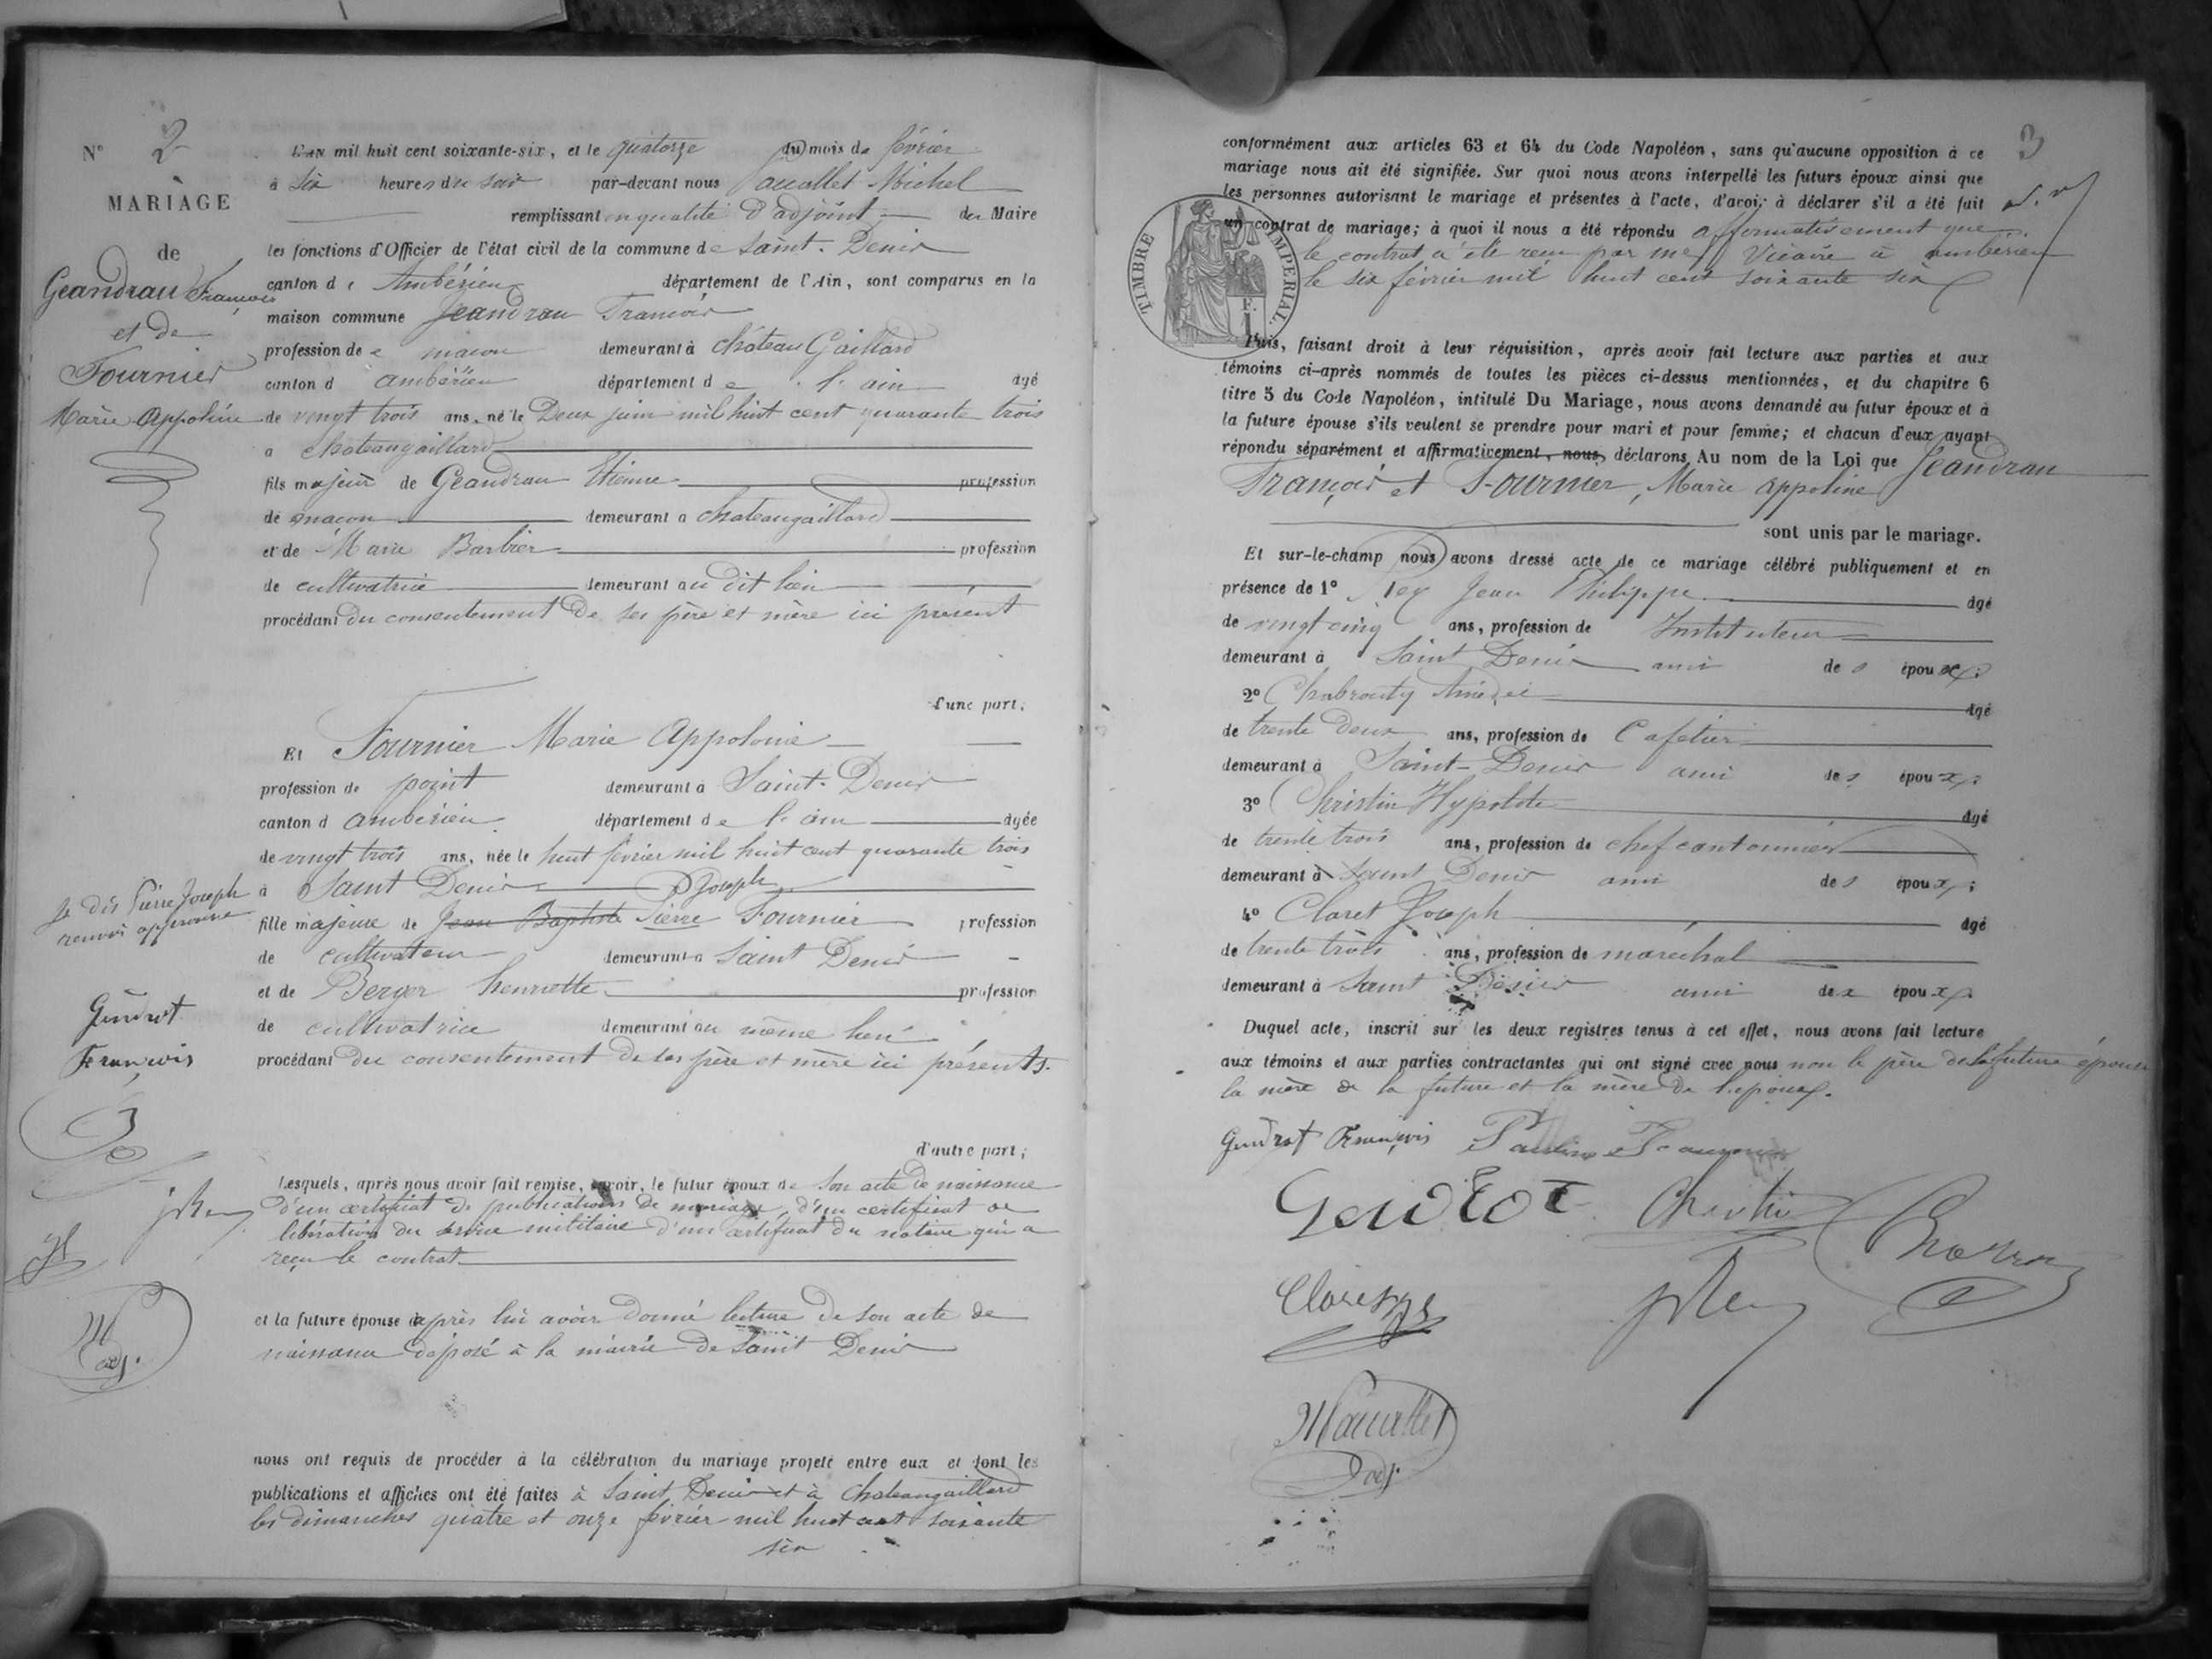 N° 2
MARIAGE
de
Geandrau François
et de
Fournier
Marie Appoline
L'AN mil huit cent soixante-six, et le quatorze du mois de février
à six heures du soir par-devant nous Michel
remplissant en qualité d'adjoint du Maire
les fonctions d'Officier de l'état civil de la commune de Saint-Denis
canton d' Ambérieu département de l'Ain, sont comparus en la
maison commune Jeandrau François
profession de maçon demeurant à château Gaillard
canton d ambérieu département de l'ain âgé
de vingt trois ans, né le Deux juin mil huit cent quarante trois
a chateaugaillard
fils majeur de Geandrau Etienne profession
de maçon demeurant a chateaugaillard
et de Marie Barbier profession
de cultivatrice demeurant au dit lieu
procédant du consentement de ses père et mère ici présent
d'une part;
Et Fournier Marie Appolonie
profession de point demeurant a Saint-Denis
canton d ambérieu département de l'ain âgée
de vingt trois ans, née le huit février mil huit cent quarante trois
à Saint Denis Joseph
fille majeure de Jean Baptiste Pierre Fournier profession
de cultivateur demeurant a Saint Denis
et de Berger henriette profession
de cultivatrice demeurant au même lieu
procédant du consentement de ses père et mère ici présents.
d'autre part;
Je dis Pierre Joseph
renvoi approuvé
Gindrot
François
jRey
Lesquels, après nous avoir fait remise, savoir, le futur époux de son acte de naissance
d'un certificat de publications de mariage, d'un certificat de
libération du service militaire d'un certificat du notaire qui a
reçu le contrat
et la future épouse après lui avoir donné lecture de son acte de
naissance déposé à la mairie de Saint Denis
nous ont requis de procéder à la célébration du mariage projeté entre eux et dont les
publications et affiches ont été faites à Saint Denis et à Chateaugaillard
les dimanches quatre et onze février mil huit cent soixante
six
3
conformément aux articles 63 et 64 du Code Napoléon, sans qu'aucune opposition à ce
mariage nous ait été signifiée. Sur quoi nous avons interpellé les futurs époux ainsi que
les personnes autorisant le mariage et présentes à l'acte, d'avoir à déclarer s'il a été fait
un contrat de mariage; à quoi il nous a été répondu affirmativement que
le contrat a été reçu par me Vicaire à ambérieu
le six février mil huit cent soixante six
TIMBRE IMPERIAL
F.
1
Puis, faisant droit à leur réquisition, après avoir fait lecture aux parties et aux
témoins ci-après nommés de toutes les pièces ci-dessus mentionnées, et du chapitre 6
titre 5 du Code Napoléon, intitulé Du Mariage, nous avons demandé au futur époux et à
la future épouse s'ils veulent se prendre pour mari et pour femme; et chacun d'eux ayant
répondu séparément et affirmativement, nous déclarons Au nom de la Loi que Jeandrau
François et Fournier, Marie Appoline
sont unis par le mariage.
Et sur-le-champ nous avons dressé acte de ce mariage célébré publiquement et en
présence de 1° Rey Jean Philippe âgé
de vingt cinq ans, profession de Instituteur
demeurant à Saint Denis ami des époux;
2° Amédée âgé
de trente deux ans, profession de Cafetier
demeurant à Saint-Denis ami des époux;
3° Christin Hypolite âgé
de trente trois ans, profession de chef cantonnier
demeurant à Saint Denis ami des époux;
4° Claret Joseph âgé
de trente trois ans, profession de maréchal
demeurant à Saint Denis ami des époux.
Duquel acte, inscrit sur les deux registres tenus à cet effet, nous avons fait lecture
aux témoins et aux parties contractantes qui ont signé avec nous non le père de la future épouse
la mère de la future et la mère de l'époux.
Gindrot François
Christin
Claret
jRey
adj.